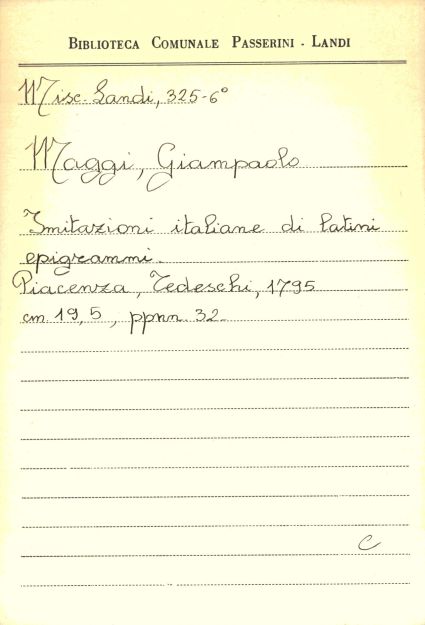 BIBLIOTECA COMUNALE PASSERINI - LANDI
Misc. Landi, 325-6°
Maggi, Giampaolo
Imitazioni italiane di latini
epigrammi.
Piacenza, Tedeschi, 1795
cm. 19,5, ppnn. 32.
C